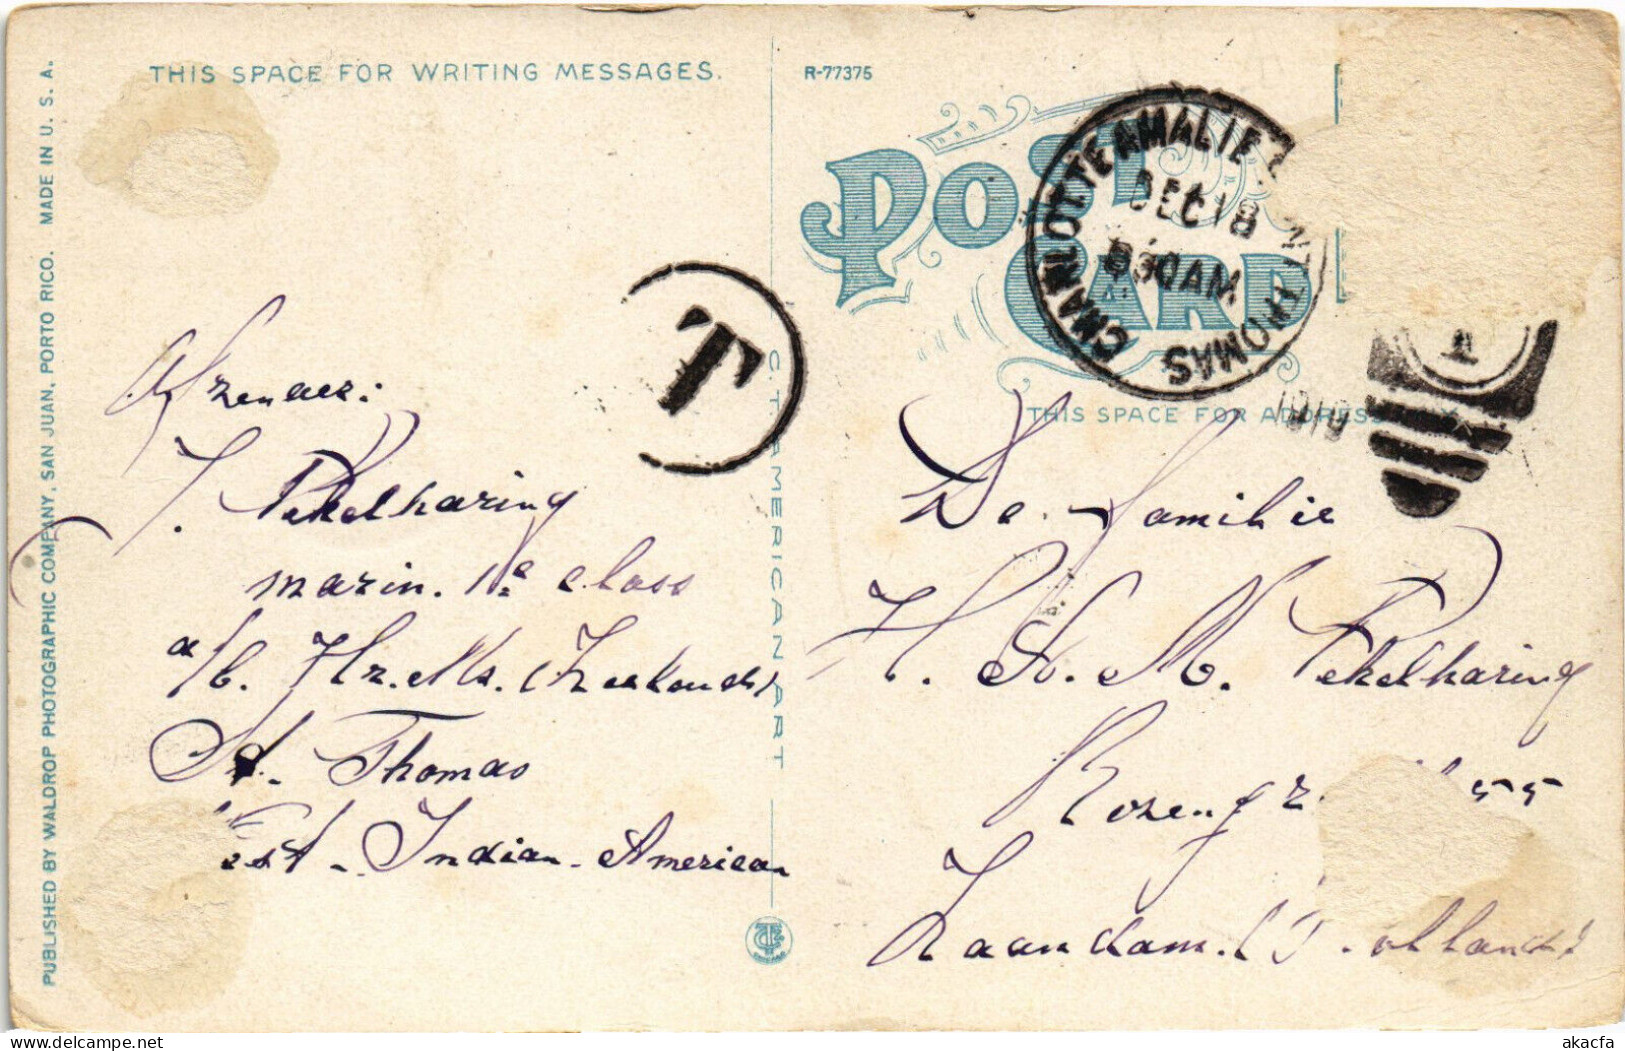 THIS SPACE FOR WRITING MESSAGES.
R-77375
POST CARD
CHARLOTTE AMALIE
DEC 18
AM
ST THOMAS
1
1919
T
THIS SPACE FOR ADDRESS
PUBLISHED BY WALDROP PHOTOGRAPHIC COMPANY, SAN JUAN, PORTO RICO. MADE IN U. S. A.
C.T. AMERICAN ART
Afzender:
J. Pekelharing
marin. 1e class
a/b. Hr. Ms. (Zeeland)
St. Thomas
West-Indian-American
De Familie
H. St. M. Pekelharing
55
Zaandam. Holland
akacfa